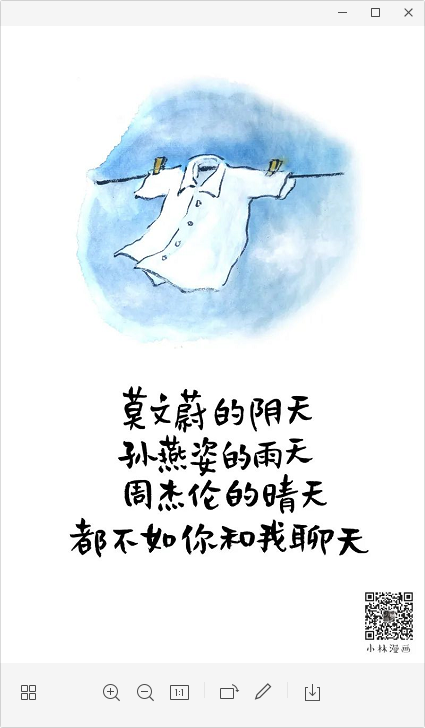 莫文蔚的阴天
孙燕姿的雨天
周杰伦的晴天
都不如你和我聊天
小林漫画
1:1